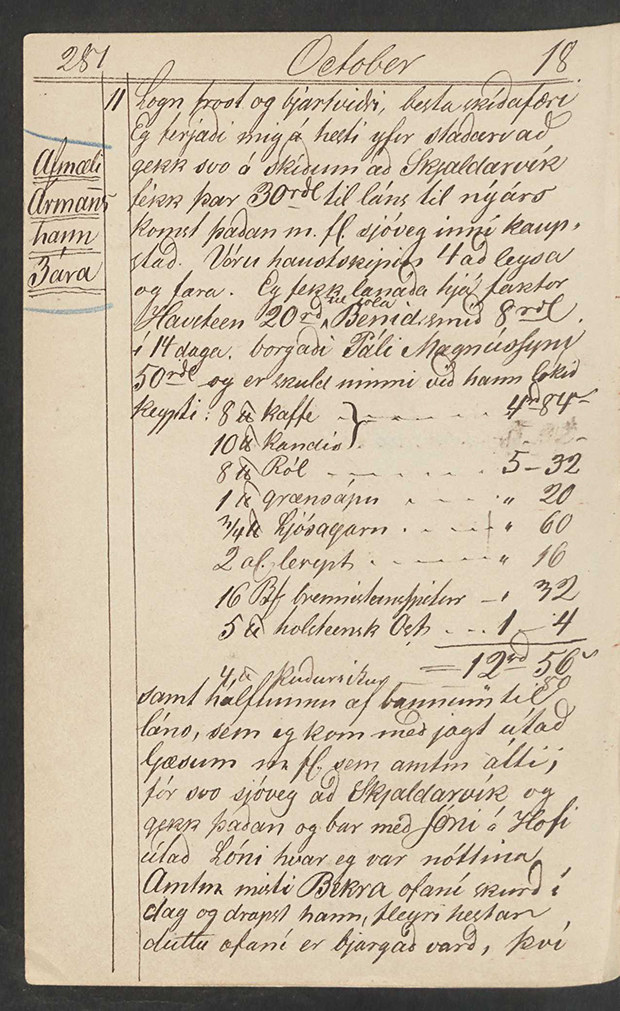 281 October 18
11 Logn frost og bjartviðri, besta skíðafæri
Afmæli
Ármanns
hann
3 ára
Eg ferjaði mig a hesti yfir staðará að
gekk svo á skíðum að Skjaldarvík
fékk þar 30 rdl til láns til nýárs
komst þaðan m. fl. sjóveg inní kaup-
stað. Vóru haustskipin 4 að leysa
og fara. Eg fekk lánaða hjá faktor
Havsteen 20 rd, Benid. smið 8 rdl
í 14 daga. borgaði Páli Magnússyni
50 rdl og er skuld minni við hann lokið
keypti: 8 ℔ kaffe 4 rd 84
10 ℔ kandis
8 ℔ Ról 5 - 32
1 ℔ grænsápu " 20
3/4 ℔ Ljósagarn " 60
2 al. lerept " 16
16 Bf brennisteinsspitur " 32
5 ℔ holsteensk Ost 1 - 4
= 12 rd 56
4 ℔
80
samt hálftunnu af til
láns, sem eg kom með jagt útað
Gæsum m fl. sem amtm átti;
fór svo sjóveg að Skjaldarvík og
gekk þaðan og bar með Jóni á Hofi
útað Lóni hvar eg var nóttina
Amtm misti Bikra ofaní skurð í
dag og drapst hann, fleyri hestar
duttu ofaní er bjargað varð, því